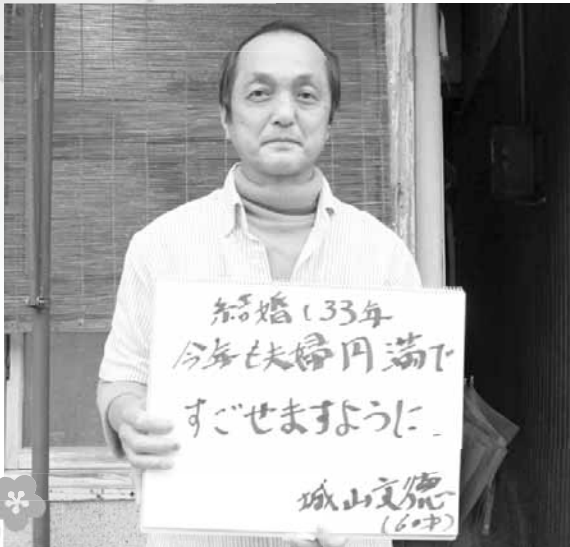 結婚し33年
今年も夫婦円満で
すごせますように
城山文徳
(60才)